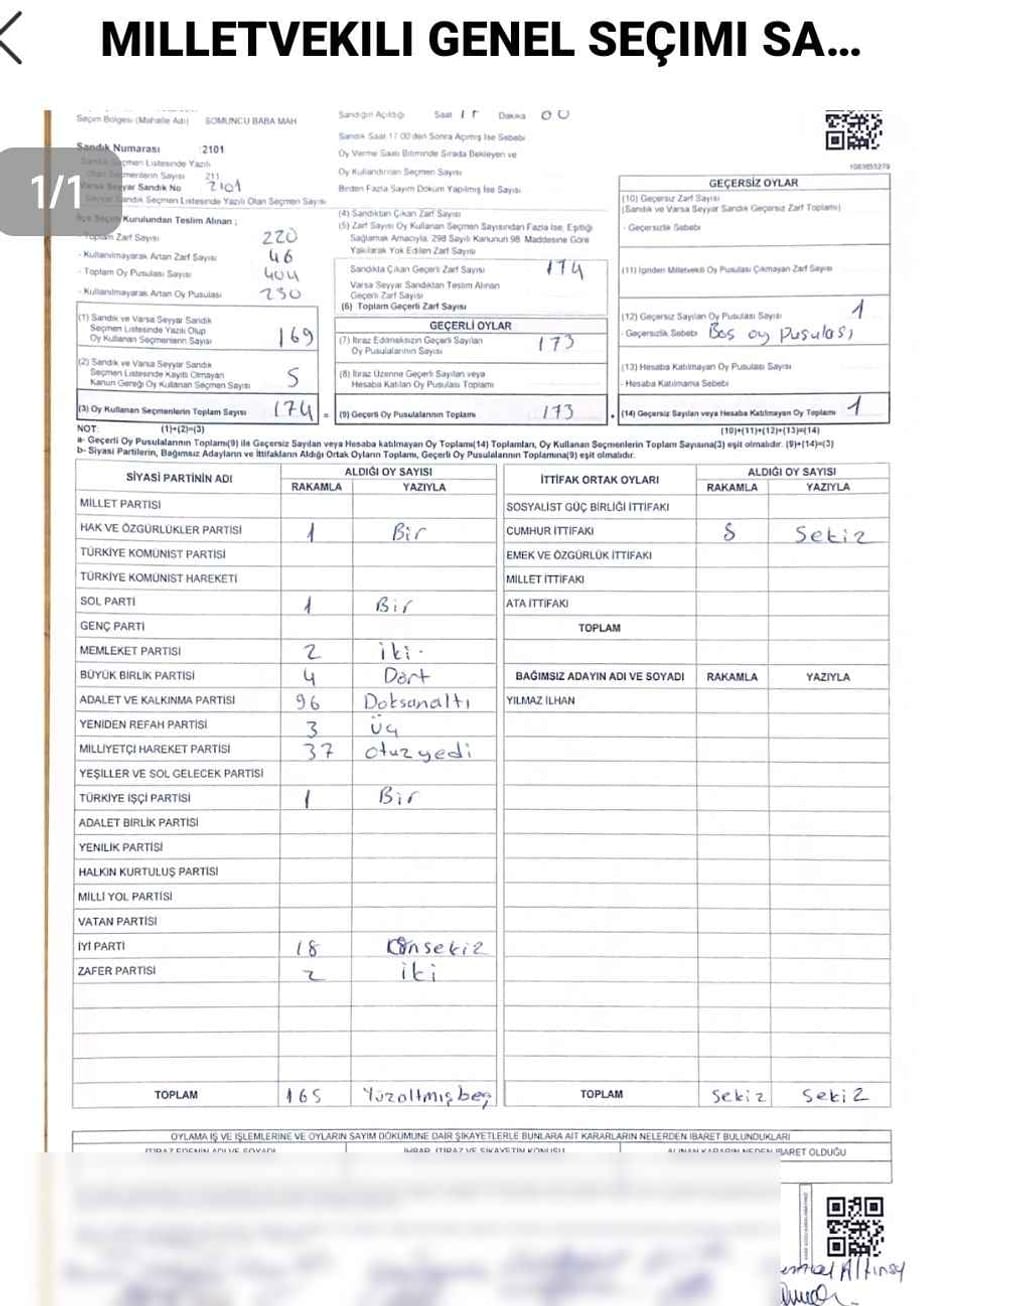 MILLETVEKILI GENEL SEÇIMI SA...
1/1
Seçim Bölgesi (Mahalle Adı) SOMUNCU BABA MAH
Sandık Numarası :2101
Sandık Seçmen Listesinde Yazılı
Olan Seçmenlerin Sayısı 211
Varsa Seyyar Sandık No 2101
Seyyar Sandık Seçmen Listesinde Yazılı Olan Seçmen Sayısı
İlçe Seçim Kurulundan Teslim Alınan ;
- Toplam Zarf Sayısı 220
- Kullanılmayarak Artan Zarf Sayısı 46
- Toplam Oy Pusulası Sayısı 404
- Kullanılmayarak Artan Oy Pusulası 230
(1) Sandık ve Varsa Seyyar Sandık
Seçmen Listesinde Yazılı Olup
Oy Kullanan Seçmenlerin Sayısı 169
(2) Sandık ve Varsa Seyyar Sandık
Seçmen Listesinde Kayıtlı Olmayan
Kanun Gereği Oy Kullanan Seçmen Sayısı 5
(3) Oy Kullanan Seçmenlerin Toplam Sayısı 174 =
Sandığın Açıldığı Saat 17 Dakika 00
Sandık Saat 17.00'den Sonra Açılmış İse Sebebi
Oy Verme Saati Bitiminde Sırada Bekleyen ve
Oy Kullandırılan Seçmen Sayısı
Birden Fazla Sayım Döküm Yapılmış İse Sayısı
(4) Sandıktan Çıkan Zarf Sayısı
(5) Zarf Sayısı Oy Kullanan Seçmen Sayısından Fazla İse, Eşitliği
Sağlamak Amacıyla, 298 Sayılı Kanunun 98. Maddesine Göre
Yakılarak Yok Edilen Zarf Sayısı
Sandıkta Çıkan Geçerli Zarf Sayısı 174
Varsa Seyyar Sandıktan Teslim Alınan
Geçerli Zarf Sayısı
(6) Toplam Geçerli Zarf Sayısı
GEÇERLİ OYLAR
(7) İtiraz Edilmeksizin Geçerli Sayılan
Oy Pusulalarının Sayısı 173
(8) İtiraz Üzerine Geçerli Sayılan veya
Hesaba Katılan Oy Pusulası Toplamı
(9) Geçerli Oy Pusulalarının Toplamı 173
GEÇERSİZ OYLAR
(10) Geçersiz Zarf Sayısı
(Sandık ve Varsa Seyyar Sandık Geçersiz Zarf Toplamı)
- Geçersizlik Sebebi
(11) İçinden Milletvekili Oy Pusulası Çıkmayan Zarf Sayısı
(12) Geçersiz Sayılan Oy Pusulası Sayısı 1
- Geçersizlik Sebebi Boş oy pusulası
(13) Hesaba Katılmayan Oy Pusulası Sayısı
- Hesaba Katılmama Sebebi
+ (14) Geçersiz Sayılan veya Hesaba Katılmayan Oy Toplamı 1
NOT: (1)+(2)=(3) (10)+(11)+(12)+(13)=(14)
a- Geçerli Oy Pusulalarının Toplamı(9) ile Geçersiz Sayılan veya Hesaba katılmayan Oy Toplamı(14) Toplamları, Oy Kullanan Seçmenlerin Toplam Sayısına(3) eşit olmalıdır. (9)+(14)=(3)
b- Siyasi Partilerin, Bağımsız Adayların ve İttifakların Aldığı Ortak Oyların Toplamı, Geçerli Oy Pusulalarının Toplamına(9) eşit olmalıdır.
SİYASİ PARTİNİN ADI ALDIĞI OY SAYISI
RAKAMLA YAZIYLA
MİLLET PARTİSİ
HAK VE ÖZGÜRLÜKLER PARTİSİ 1 Bir
TÜRKİYE KOMÜNİST PARTİSİ
TÜRKİYE KOMÜNİST HAREKETİ
SOL PARTİ 1 Bir
GENÇ PARTİ
MEMLEKET PARTİSİ 2 iki.
BÜYÜK BİRLİK PARTİSİ 4 Dört
ADALET VE KALKINMA PARTİSİ 96 Doksanaltı
YENİDEN REFAH PARTİSİ 3 üç
MİLLİYETÇİ HAREKET PARTİSİ 37 otuzyedi
YEŞİLLER VE SOL GELECEK PARTİSİ
TÜRKİYE İŞÇİ PARTİSİ 1 Bir
ADALET BİRLİK PARTİSİ
YENİLİK PARTİSİ
HALKIN KURTULUŞ PARTİSİ
MİLLİ YOL PARTİSİ
VATAN PARTİSİ
İYİ PARTİ 18 Onsekiz
ZAFER PARTİSİ 2 iki
TOPLAM 165 Yüzaltmışbeş
İTTİFAK ORTAK OYLARI ALDIĞI OY SAYISI
RAKAMLA YAZIYLA
SOSYALİST GÜÇ BİRLİĞİ İTTİFAKI
CUMHUR İTTİFAKI 8 Sekiz
EMEK VE ÖZGÜRLÜK İTTİFAKI
MİLLET İTTİFAKI
ATA İTTİFAKI
TOPLAM
BAĞIMSIZ ADAYIN ADI VE SOYADI RAKAMLA YAZIYLA
YILMAZ İLHAN
TOPLAM Sekiz Sekiz
OYLAMA İŞ VE İŞLEMLERİNE VE OYLARIN SAYIM DÖKÜMÜNE DAİR ŞİKAYETLERLE BUNLARA AİT KARARLARIN NELERDEN İBARET BULUNDUKLARI
İTİRAZ EDENİN ADI VE SOYADI İHBAR, İTİRAZ VE ŞİKAYETİN KONUSU ALINAN KARARIN NEDEN İBARET OLDUĞU